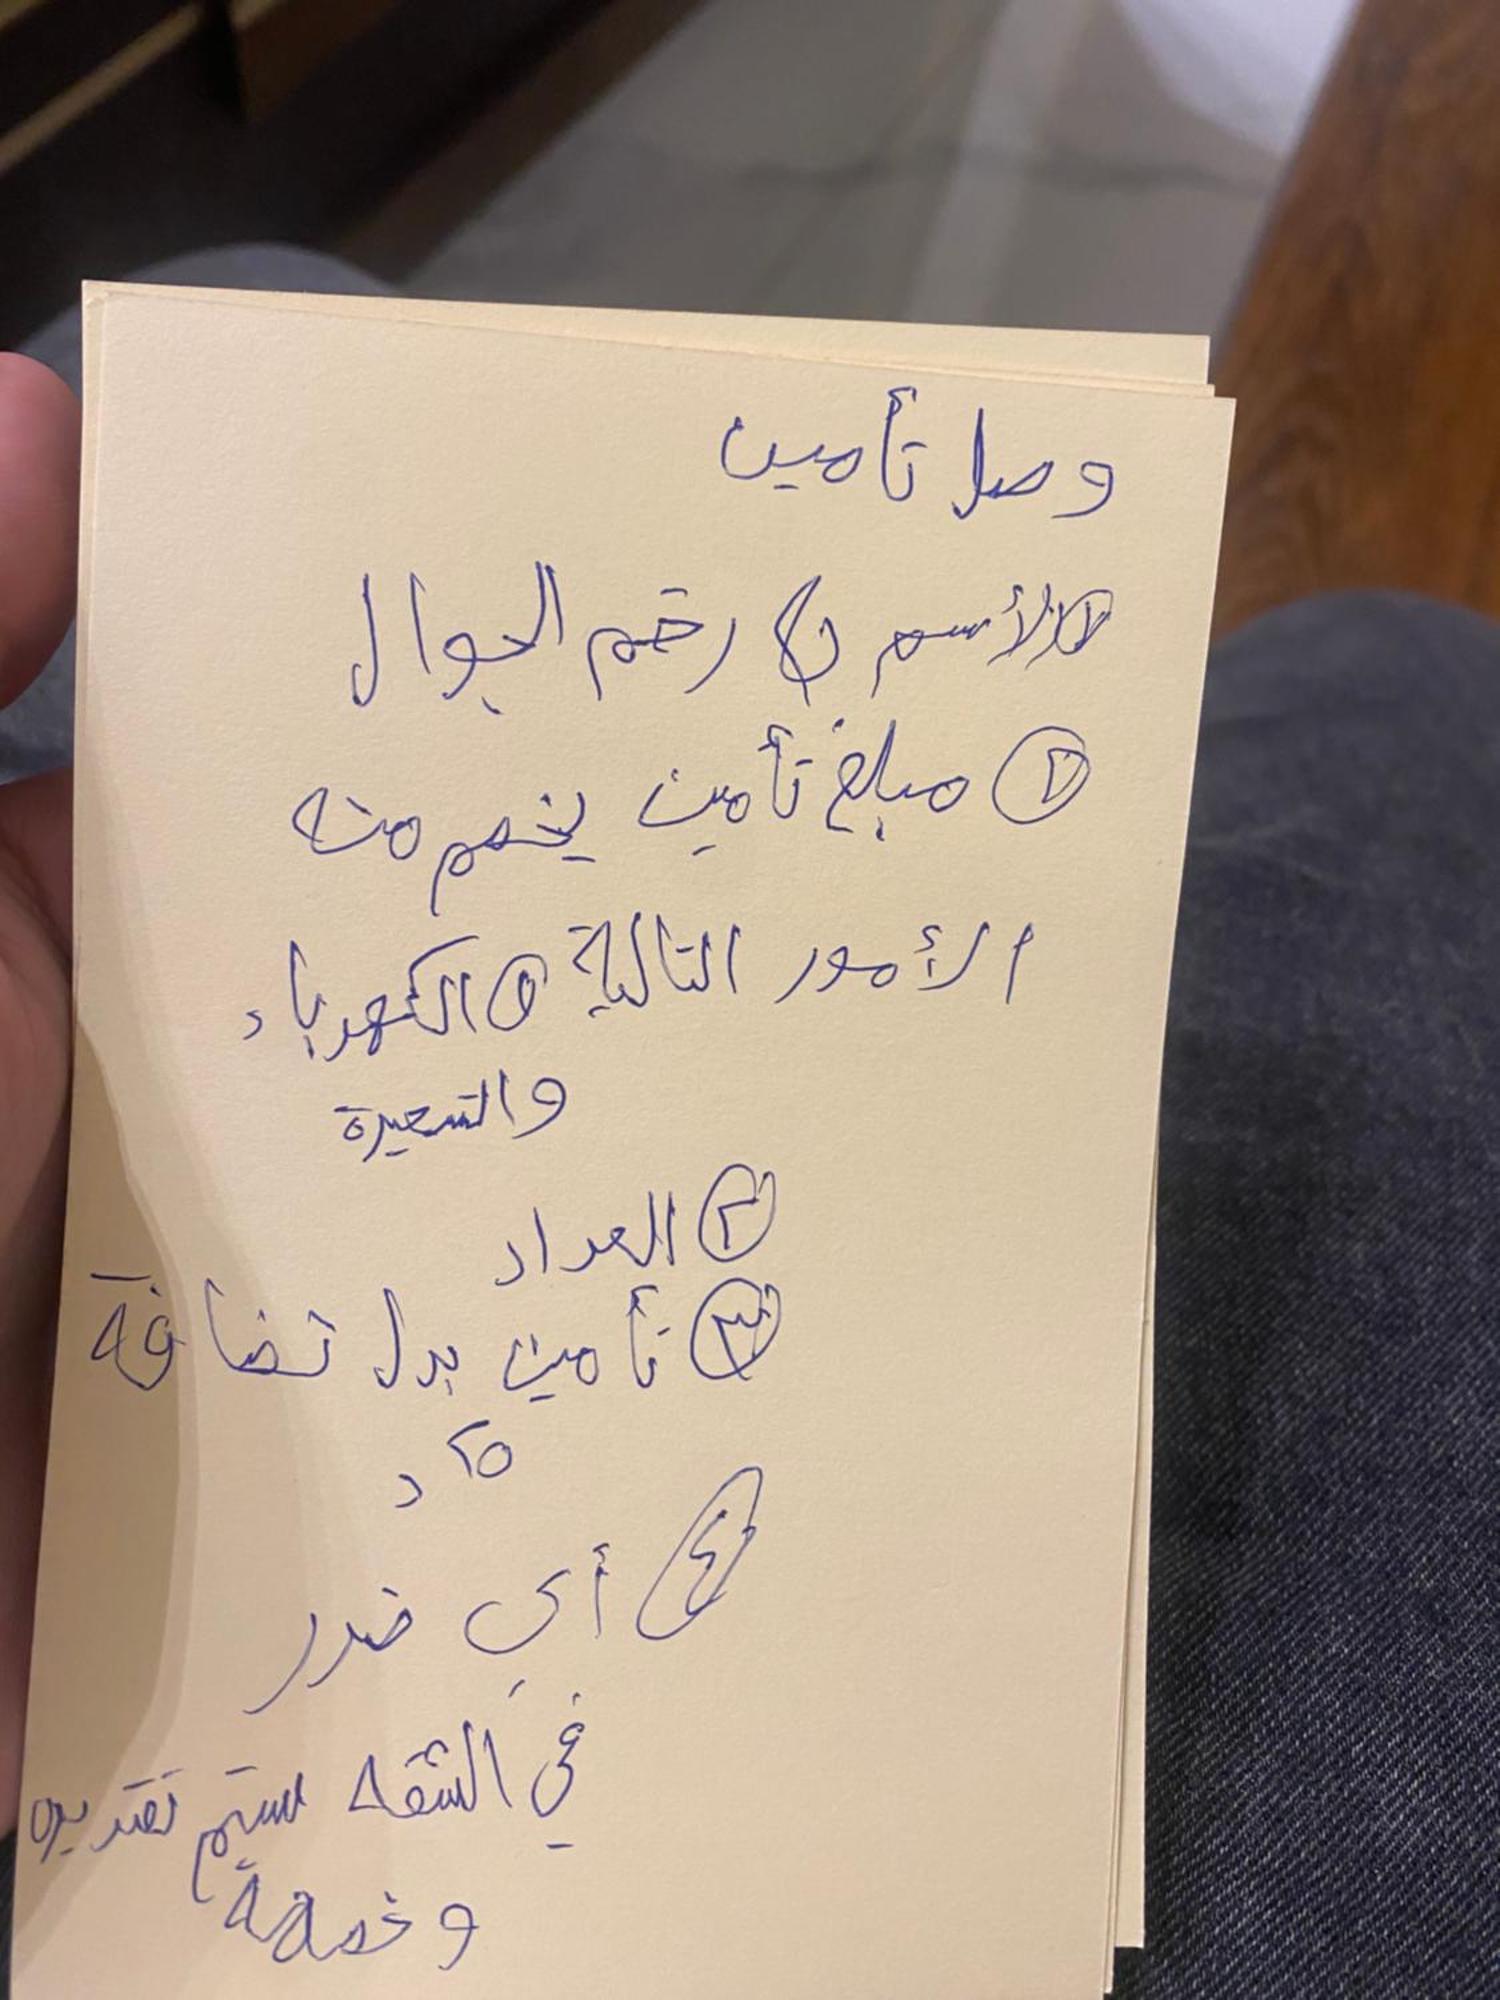 وصل تأمين
① الأسم ② رقم الجوال
② مبلغ تأمين يخصم منه
الأمور التالية ① الكهرباء
والتسعيرة
② العداد
③ تأمين بدل تضافة
٢٥ د
④ أي ضرر
في الشقه سيتم تقديره
وخصمة